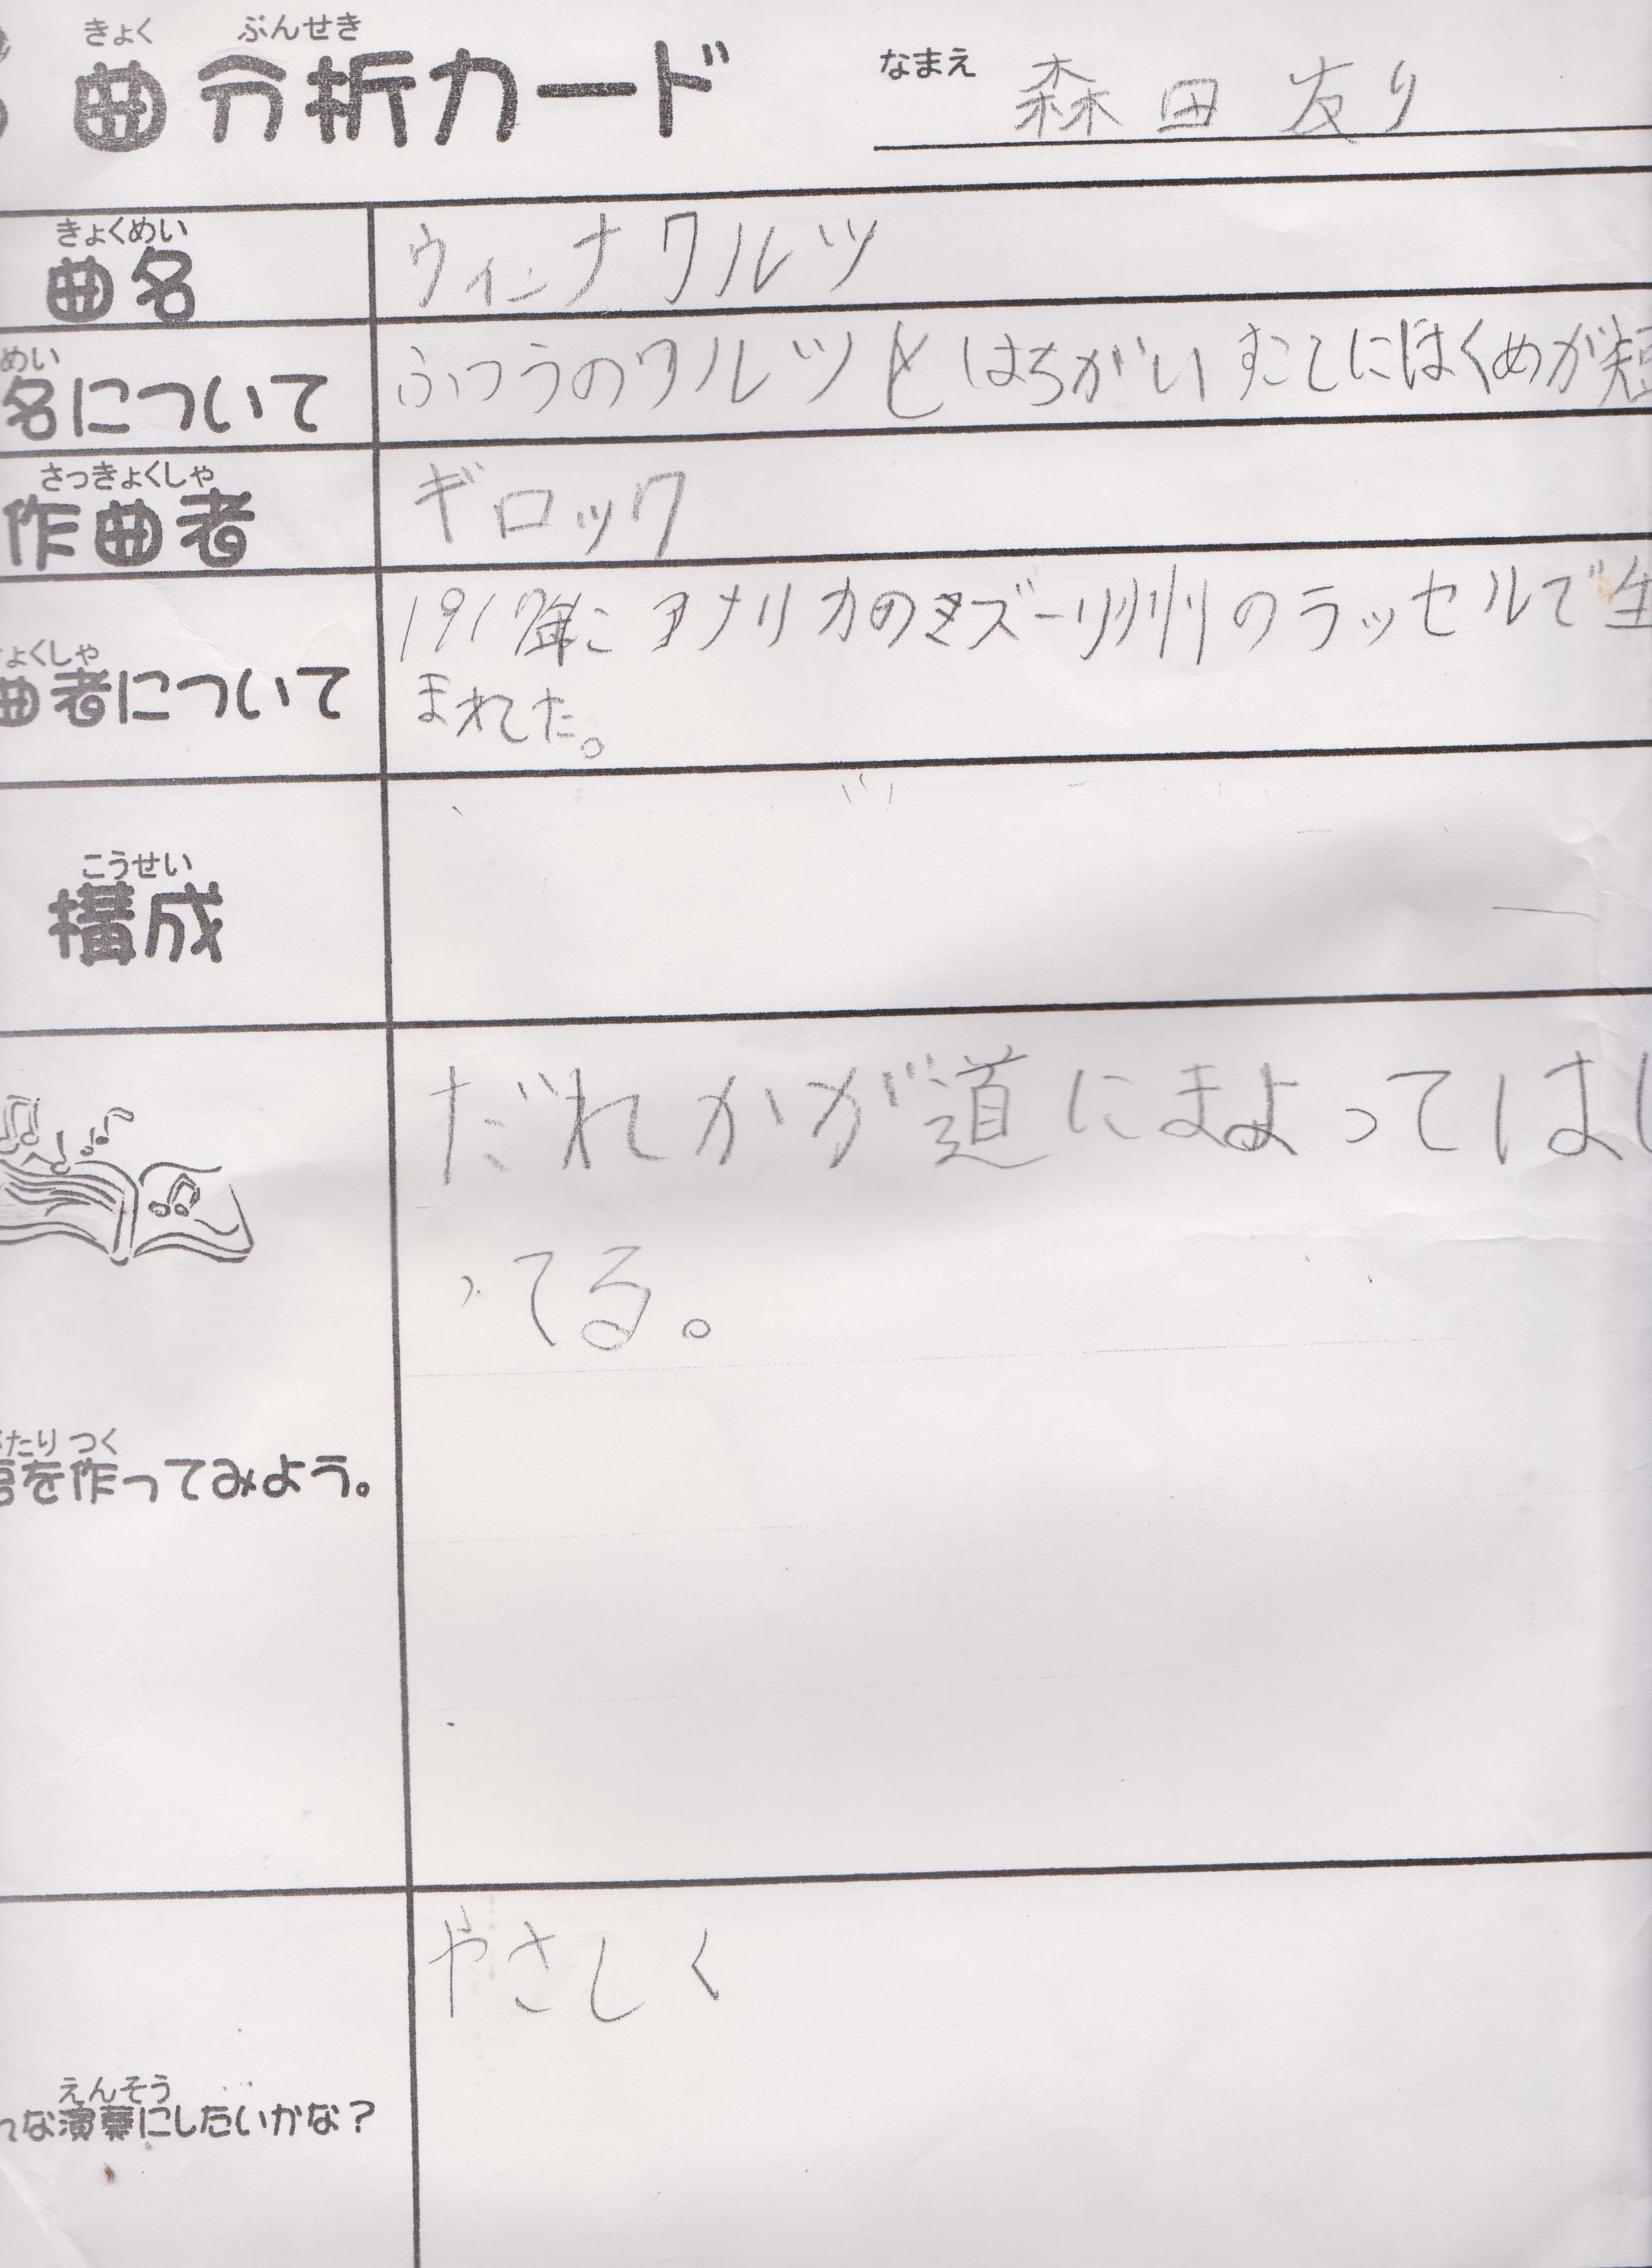 きょく ぶんせき
曲分析カード
なまえ 森田友り
きょくめい
曲名
ウィンナワルツ
めい
名について
ふつうのワルツとはちがいすこしにはくめが短
さっきょくしゃ
作曲者
ギロック
ょくしゃ
曲者について
1917年にアメリカのミズーリ州のラッセルで生
まれた。
こうせい
構成
だれかが道にまよってはし
ってる。
たり つく
を作ってみよう。
やさしく
えんそう
な演奏にしたいかな？